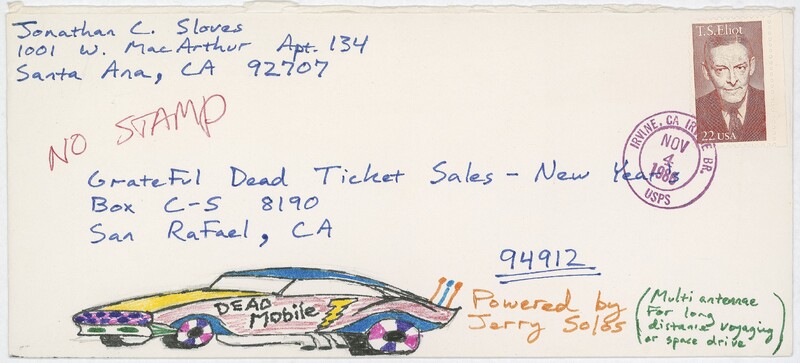 Jonathan C. Sloves
1001 W. MacArthur Apt. 134
Santa Ana, CA 92707
T.S. Eliot
22 USA
IRVINE, CA IRVINE BR.
NOV
4
USPS
NO STAMP
Grateful Dead Ticket Sales - New Year's
Box C-S 8190
San Rafael, CA
94912
DEAD
Mobile
Powered by
Jerry Solos
(Multi antennae
For long
distance voyaging
or space drive)